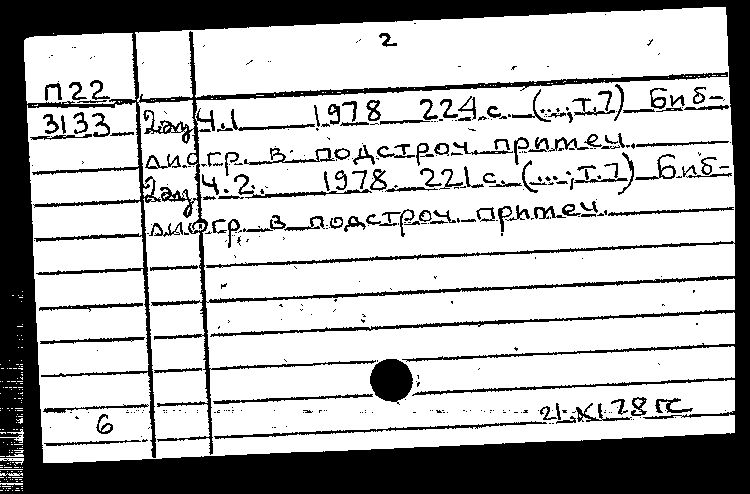 2
П22
3133 2 экз Ч.1 1978 224 с. (...; т.7) Биб-
лиогр. в подстроч. примеч.
2 экз Ч.2. 1978. 221 с. (...; т.7) Биб-
лиогр. в подстроч. примеч.
6 21.XI.78